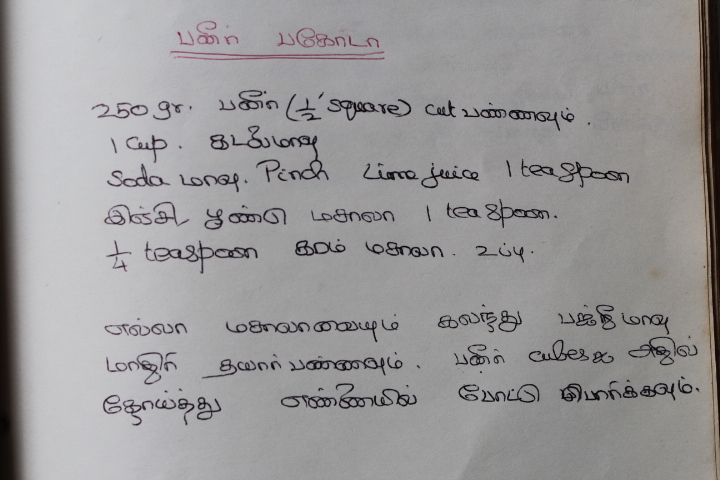 பனீர் பகோடா
250 gr. பனீர் (½" square) cut பண்ணவும்.
1 cup. கடலைமாவு
Soda மாவு. Pinch Lime juice 1 teaspoon
இஞ்சி பூண்டு மசாலா 1 teaspoon.
¼ teaspoon கரம் மசாலா. உப்பு.
எல்லா மசாலாவையும் கலந்து பஜ்ஜி மாவு
மாதிரி தயார் பண்ணவும். பனீர் cubesஐ அதில்
தோய்த்து எண்ணெயில் போட்டு பொரிக்கவும்.